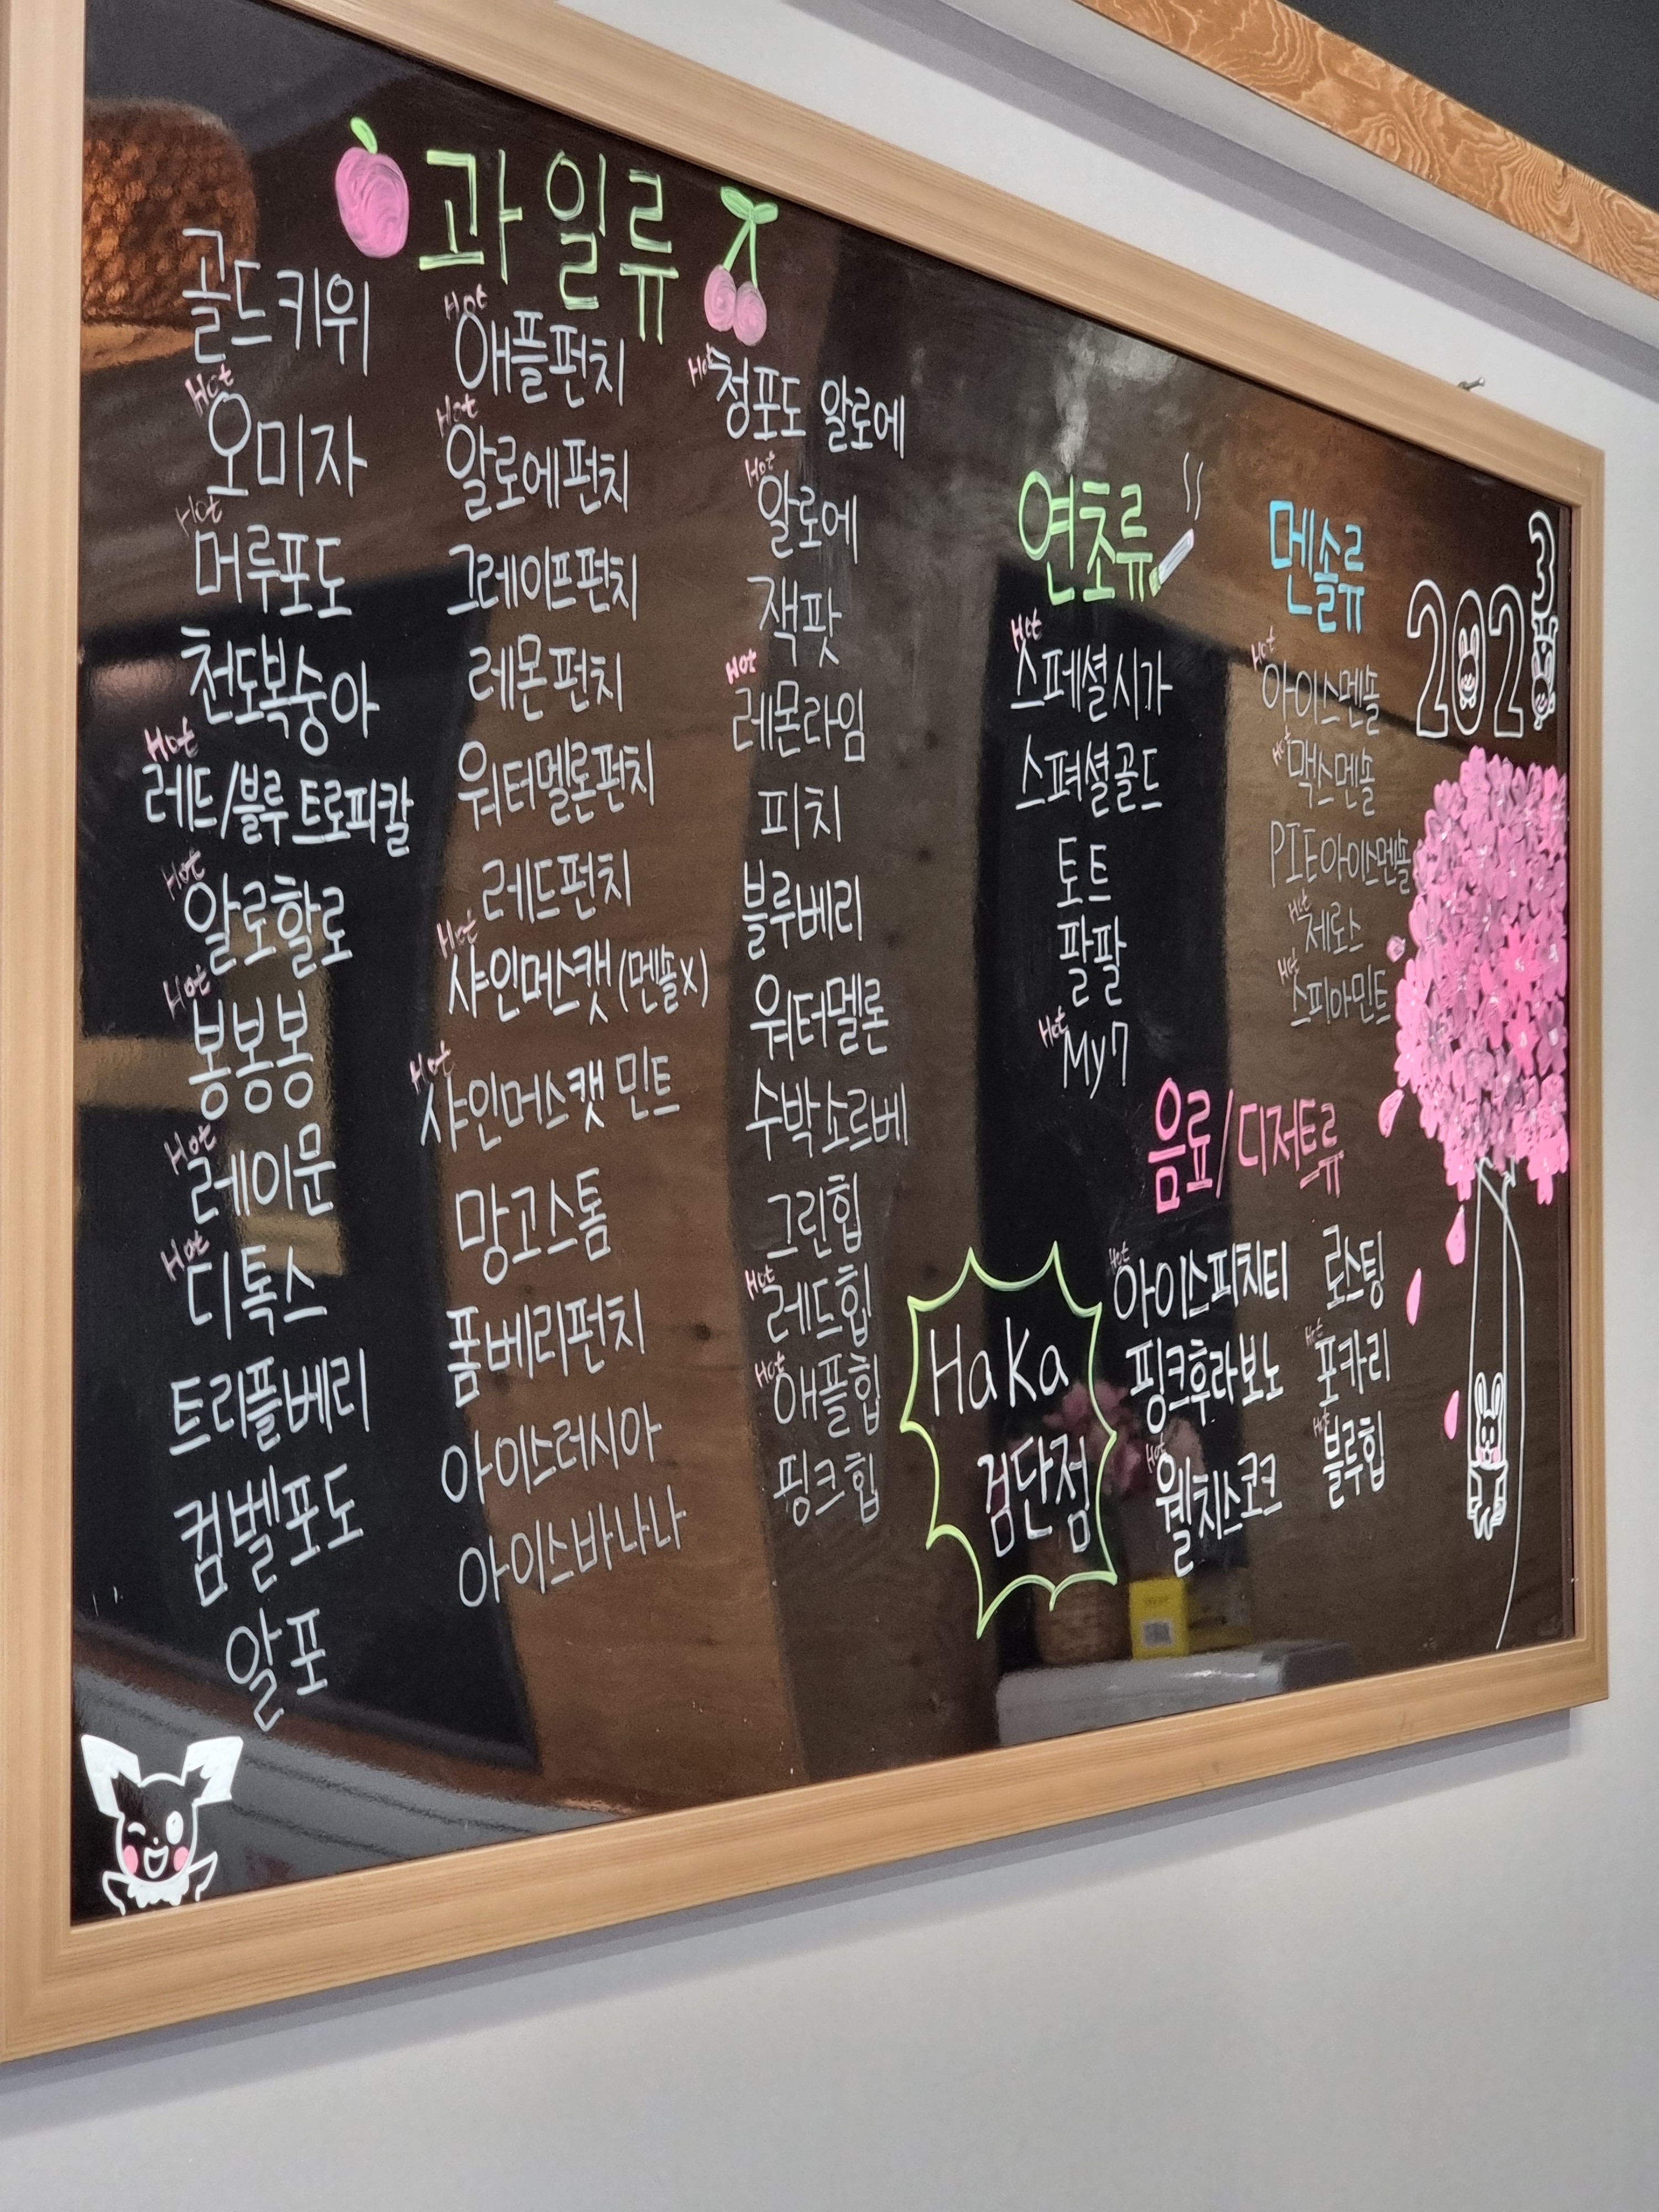 과일류
골드키위
Hot
오미자
Hot
머루포도
천도복숭아
Hot
레드/블루 트로피칼
Hot
알로할로
Hot
봉봉봉
Hot
레이문
Hot
디톡스
트리플베리
컴벨포도
알포
Hot
애플펀치
Hot
알로에펀치
그레이프펀치
레몬펀치
워터멜론펀치
레드펀치
Hot
샤인머스캣 (멘솔X)
Hot
샤인머스캣 민트
망고스톰
폼베리펀치
아이스러시아
아이스바나나
Hot
청포도 알로에
Hot
알로에
잭팟
Hot
레몬라임
피치
블루베리
워터멜론
수박소르베
그린힙
Hot
레드힙
Hot
애플힙
핑크힙
연초류
Hot
스페셜시가
스페셜골드
토트
팔팔
Hot
My7
멘솔류
Hot
아이스멘솔
Hot
맥스멘솔
PIE아이스멘솔
Hot
제로스
Hot
스피아민트
2023
음료/디저트류
Hot
아이스피치티
핑크후라보노
Hot
웰치스코크
로스팅
Hot
포카리
Hot
블루힙
Haka
검단점